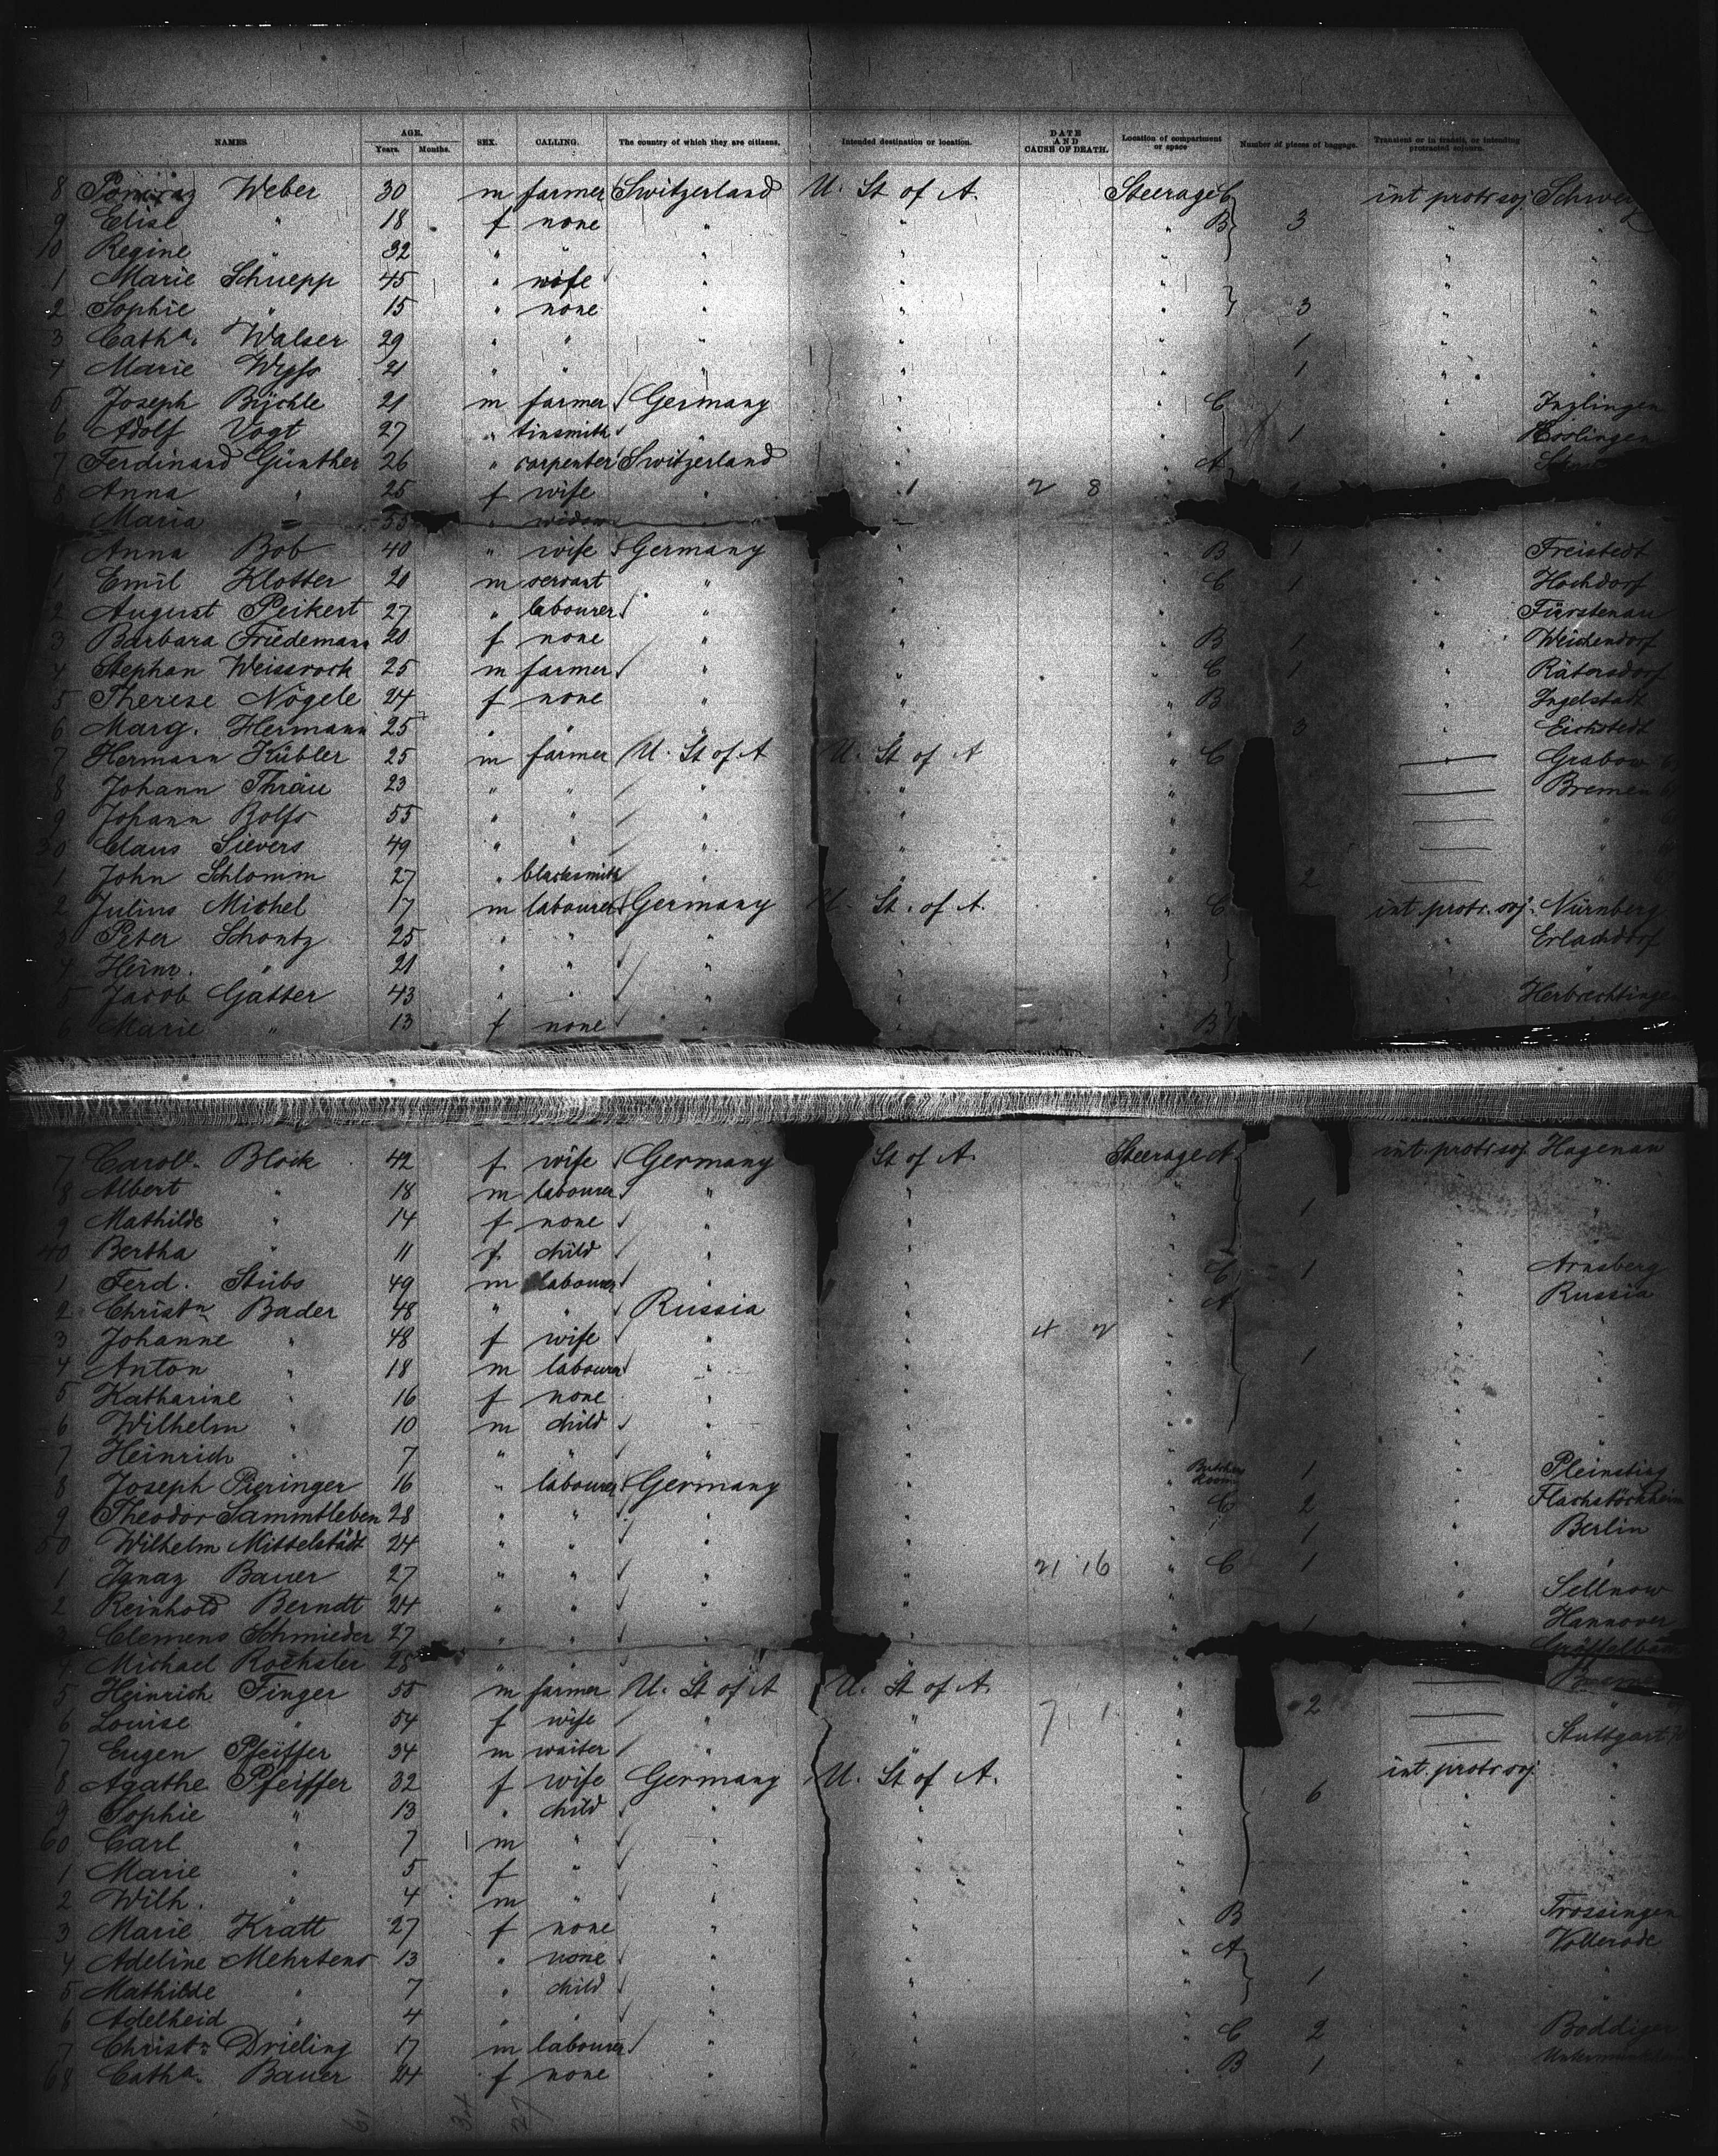 NAMES AGE. Years. Months. SEX. CALLING. The country of which they are citizens. Intended destination or location. DATE AND CAUSE OF DEATH. Location of compartment or space Number of pieces of baggage. Transient or in transit, or intending protracted sojourn.
8 Weber 30 m farmer Switzerland U. St of A. Steerage C int protr soj.
9 Elise " 18 f none " " " B 3 " "
10 Regine " 32 " " " " " " "
1 Marie Schuepp 45 " wife " " " " "
2 Sophie " 15 " none " " " 3 " "
3 Catha. Walser 29 " " " " " 1 " "
4 Marie Wyss 21 " " " " " 1 " "
5 Joseph Büchle 21 m farmer Germany " " C " Inzlingen
6 Adolf Vogt 27 " tinsmith " " " 1 " Esslingen
7 Ferdinand Günther 26 " carpenter Switzerland " " A "
8 Anna " 25 f wife " " 2 8 "
Maria " 55 " widow
Anna Bob 40 " wife Germany " " B 1 " Freistedt
1 Emil Klotter 20 m servant " " " C 1 " Hochdorf
2 August Peikert 27 " labourer " " " " Fürstenau
3 Barbara Friedemann 20 f none " " " B 1 " Weichendorf
4 Stephan Weissrock 25 m farmer " " " C 1 " Rätersdorf
5 Therese Nögele 24 f none " " " B " Ingelstadt
6 Marg. Hermann 25 " " " " " 3 " Eichstedt
7 Hermann Kübler 25 m farmer U. St of A U. St of A " C — Grabow
8 Johann Thräu 23 " " " " " — Bremen
9 Johann Bolfs 55 " " " " " — "
30 Claus Sievers 49 " " " " " — "
1 John Schlomm 27 " blacksmith " " " 2 —
2 Julius Michel 17 m labourer Germany U. St. of A. " C int protr. soj. Nürnberg
3 Peter Schontz 25 " " " " " " Erlachdorf
4 Heinr. " 21 " " " " " "
5 Jacob Gatter 43 " " " " " Herbrechtingen
6 Marie " 13 f none " " " B
7 Carole. Block 42 f wife Germany St of A. Steerage A int. protr soj Hagenau
8 Albert " 18 m labourer " " " "
9 Mathilde " 14 f none " " " 1 " "
40 Bertha " 11 f child " " " "
1 Ferd. Stübs 49 m labourer " " " C 1 " Arnsberg
2 Christn. Bader 48 " " Russia " " A " Russia
3 Johanne " 48 f wife " " 4 2 " " "
4 Anton " 18 m labourer " " " 1 " "
5 Katharine " 16 f none " " " " "
6 Wilhelm " 10 m child " " " " "
7 Heinrich " 7 " " " " " " "
8 Joseph Pieringer 16 " labourer Germany " " Butchers Room 1 "
9 Theodor Sammtleben 28 " " " " " C 2 " Flachstöckheim
50 Wilhelm Mittelstädt 24 " " " " " 1 " Berlin
1 Ignaz Bauer 27 " " " " 21 16 " C 1 " "
2 Reinhold Berndt 24 " " " " " " Sellnow
3 Clemens Schmieder 27 " " " " " 1 " Hannover
4 Michael 28 " " " " "
5 Heinrich Finger 55 m farmer U. St of A U. St of A. " —
6 Louise " 54 f wife " " 7 1 " 2 — "
7 Eugen Pfeiffer 34 m waiter " " " — Stuttgart
8 Agathe Pfeiffer 32 f wife Germany U. St of A. " 6 int. protr. soj. "
9 Sophie " 13 " child " " " " "
60 Carl " 7 m " " " " " "
1 Marie " 5 f " " " " " "
2 Wilh. " 4 m " " " " " "
3 Marie Kratt 27 f none " " " B " Trossingen
4 Adeline Mehrtens 13 " none " " " A " Vollerode
5 Mathilde " 7 " child " " " 1 " "
6 Adelheid " 4 " " " " " " "
7 Christn Drieling 17 m labourer " " " C 2 "
68 Catha. Bauer 24 f none " " " B 1 "
61 34 27